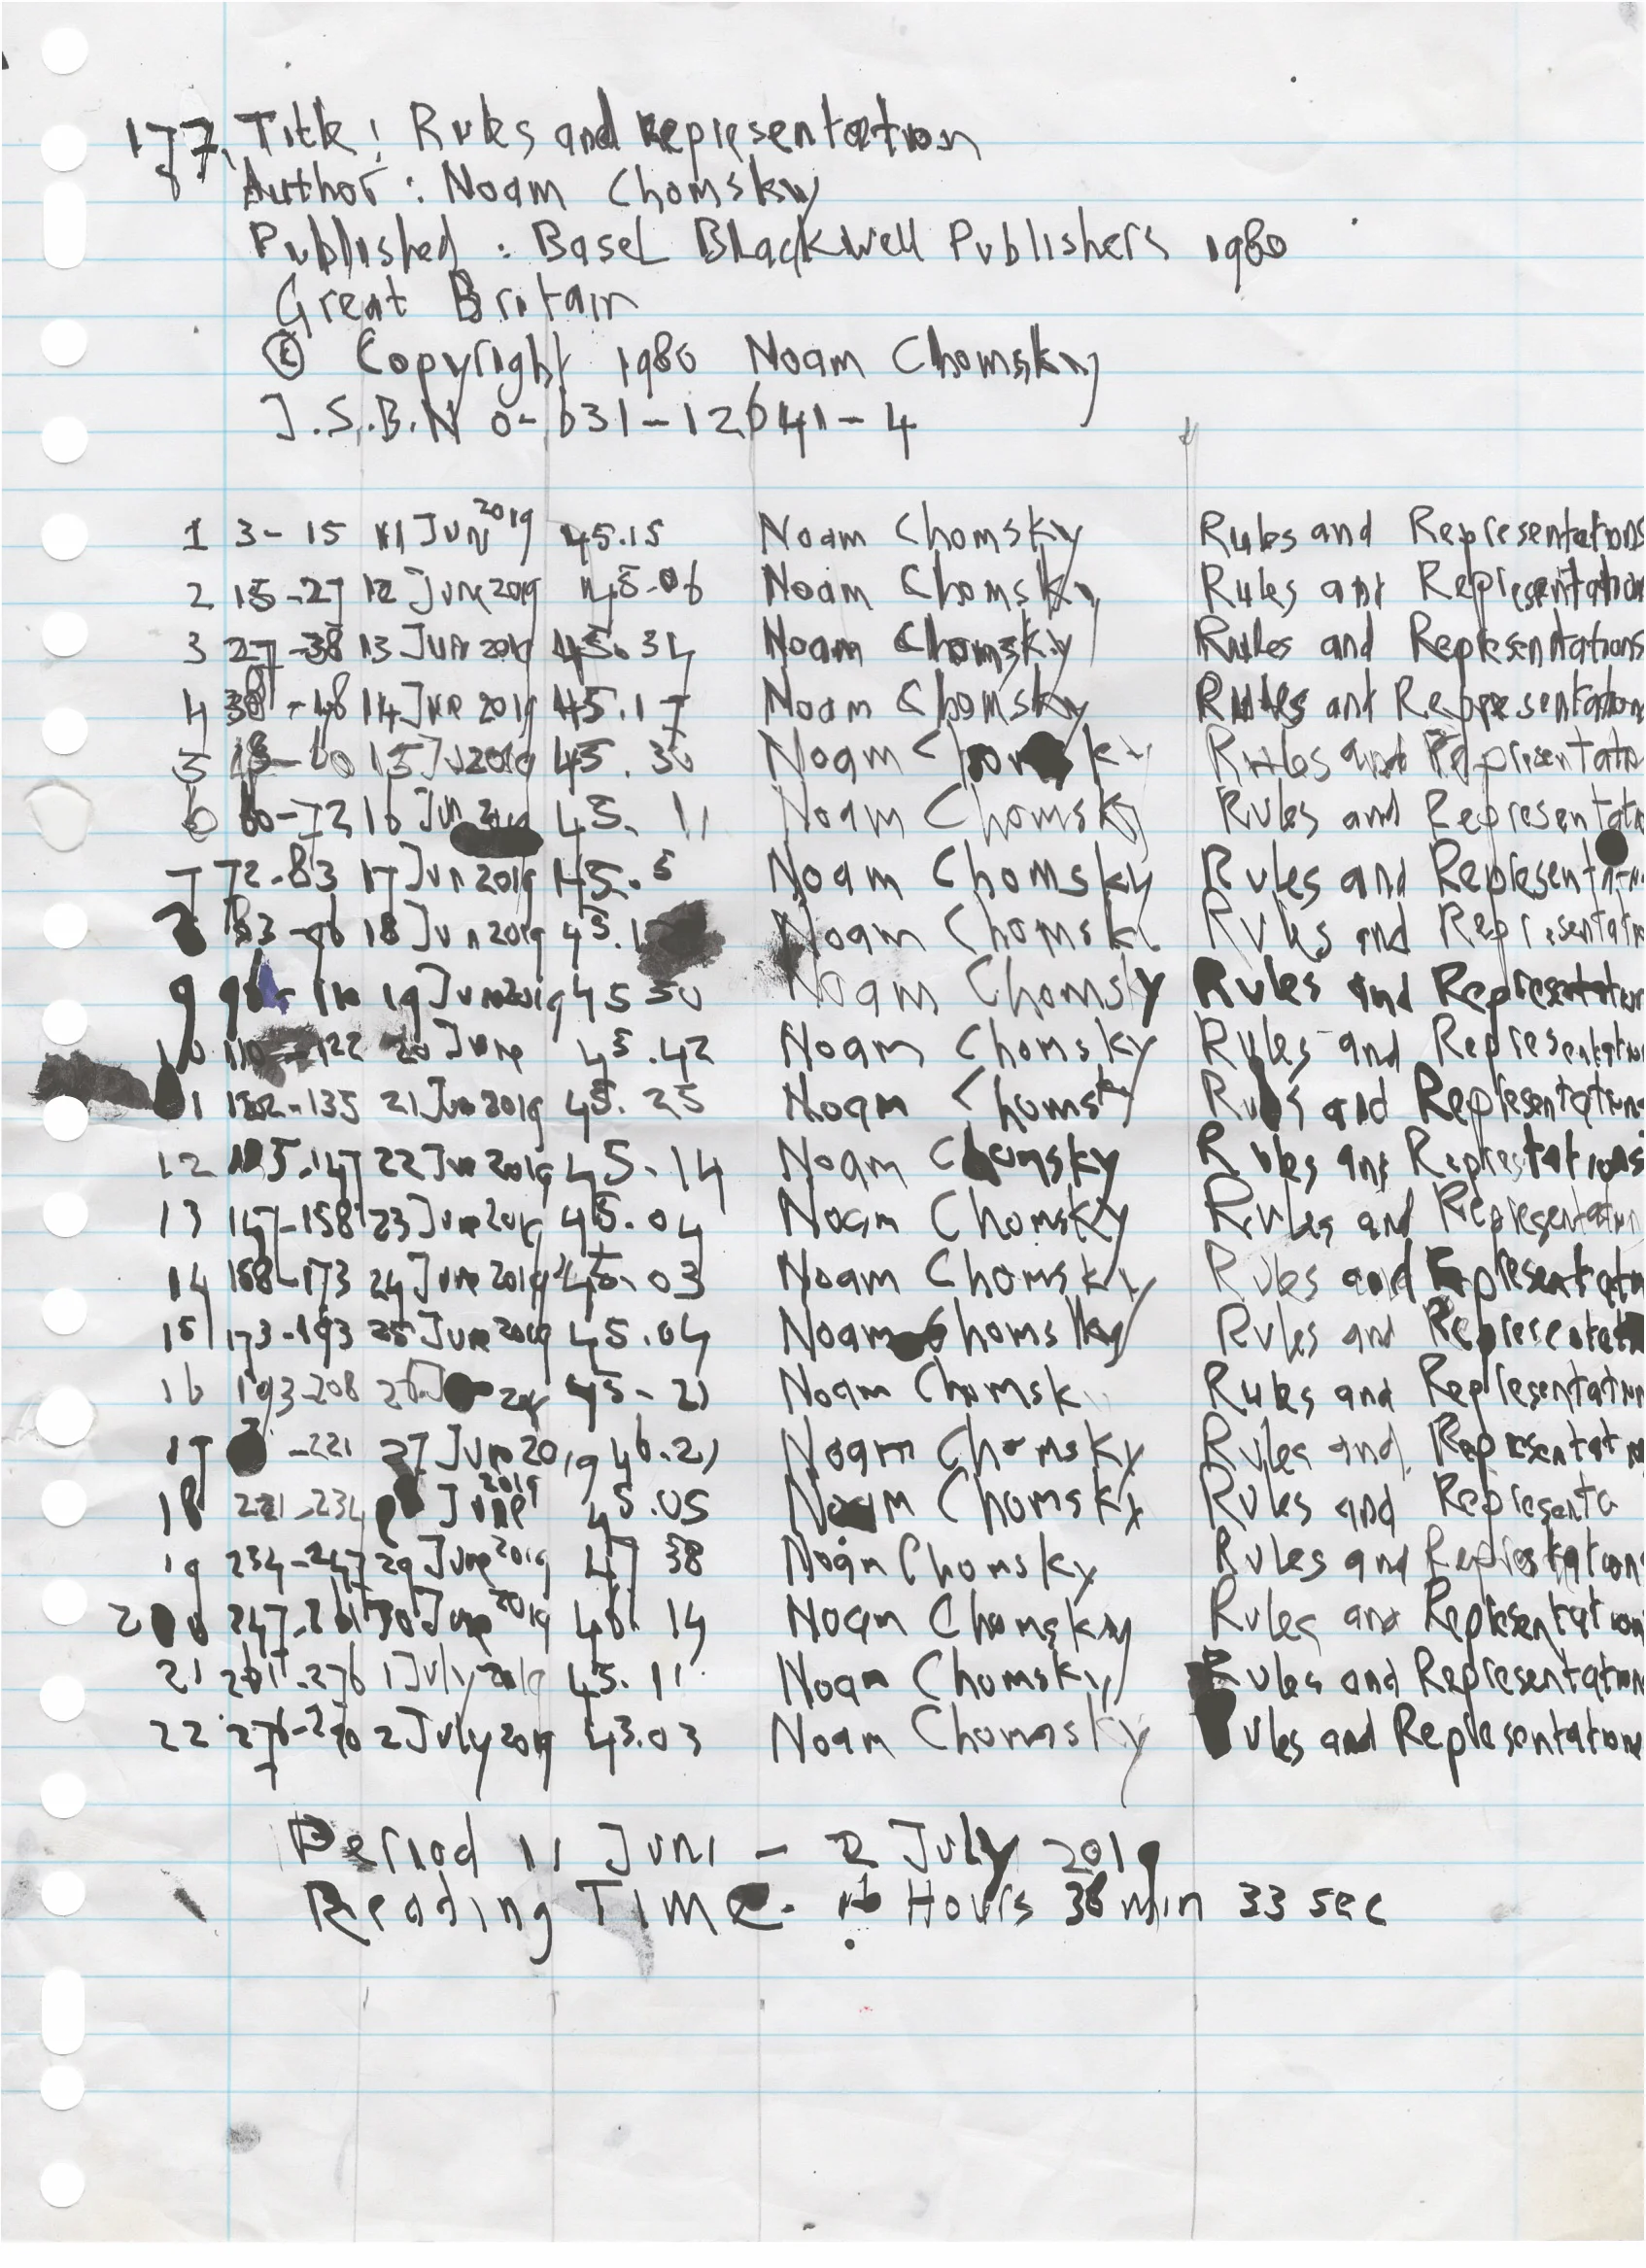 177. Title: Rules and Representation
Author: Noam Chomsky
Published: Basel Blackwell Publishers 1980
Great Britain
© Copyright 1980 Noam Chomsky
I.S.B.N 0-631-12641-4
1 3-15 11 Jun 2019 45.15 Noam Chomsky Rules and Representations
2 15-27 12 June 2019 45.06 Noam Chomsky Rules and Representation
3 27-38 13 Jun 2019 45.34 Noam Chomsky Rules and Representations
4 38-48 14 June 2019 45.17 Noam Chomsky Rules and Representation
5 48-60 15 Ju 2019 45.30 Noam Rules and Representatio
6 60-72 16 Jun 45.11 Noam Chomsky Rules and Representatio
7 72-83 17 Jun 2019 45.5 Noam Chomsky Rules and Representatio
83-96 18 Jun 2019 Noam Chomsk Rules and Representatio
9 19 June 2019 45 50 Noam Chomsky Rules and Representation
10 110-122 20 June 45.42 Noam Chomsky Rules and Representation
11 122-135 21 Jun 2019 45.25 Noam Chomsky Rules and Representations
12 22 Jun 2019 45.14 Noam Chomsky Rules and Represtations
13 147-158 23 June 2019 45.04 Noam Chomsky Rules and Representation
14 158-173 24 June 2019 45.03 Noam Chomsky Rules and Representatio
15 173-193 25 June 2019 45.04 Noam Chomsky Rules and Representatio
16 193-208 26 45-21 Noam Chomsk Rules and Representation
17 -221 27 June 2019 46.21 Noam Chomsky Rules and Representatio
18 221-234 June 2019 45.05 Noam Chomsky Rules and Representa
19 234-247 29 June 2019 47 38 Noam Chomsky Rules and Represtations
20 247-261 30 June 2019 46 14 Noam Chomsky Rules and Representation
21 261-276 1 July 2019 45.11 Noam Chomsky Rules and Representation
22 276-290 2 July 2019 43.03 Noam Chomsky Rules and Representations
Period 11 Juni - 2 July 2019
Reading Time. 16 Hours 36 min 33 sec